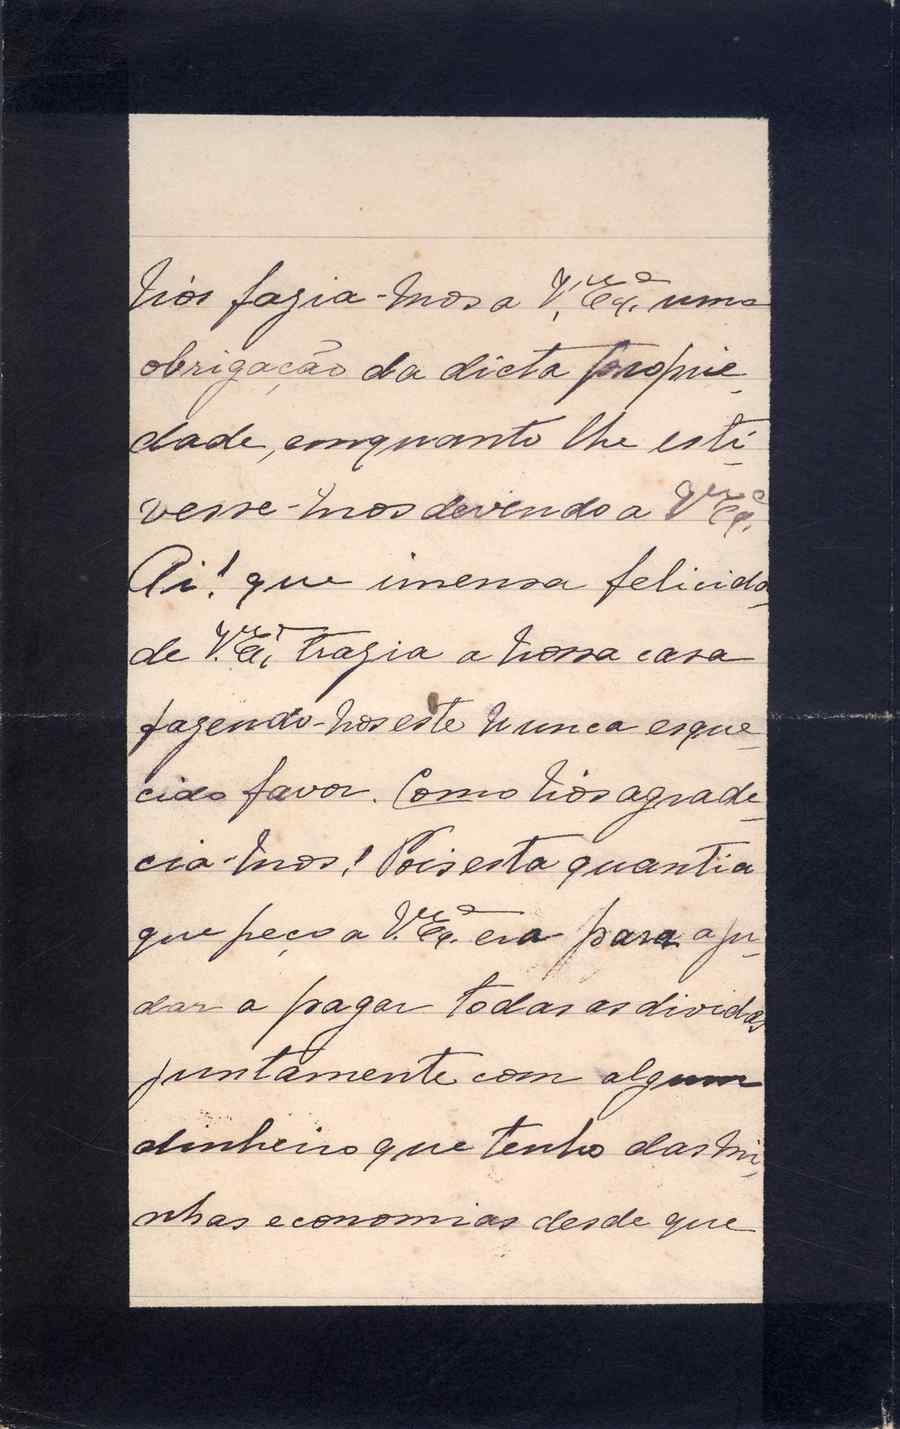 Nós fazia-mos a V. Ex.ª uma
obrigação da dicta proprie-
dade, emquanto lhe esti-
vesse-mos devendo a V. Ex.ª
Ai! que imensa felicida-
de V. Ex.ª trazia a nossa casa
fazendo-nos este nunca esque-
cido favor. Como nós agrade-
cia-mos! Pois esta quantia
que peço a V. Ex.ª era para aju-
dar a pagar todas as dividas
juntamente com algum
dinheiro que tenho das mi-
nhas economias desde que